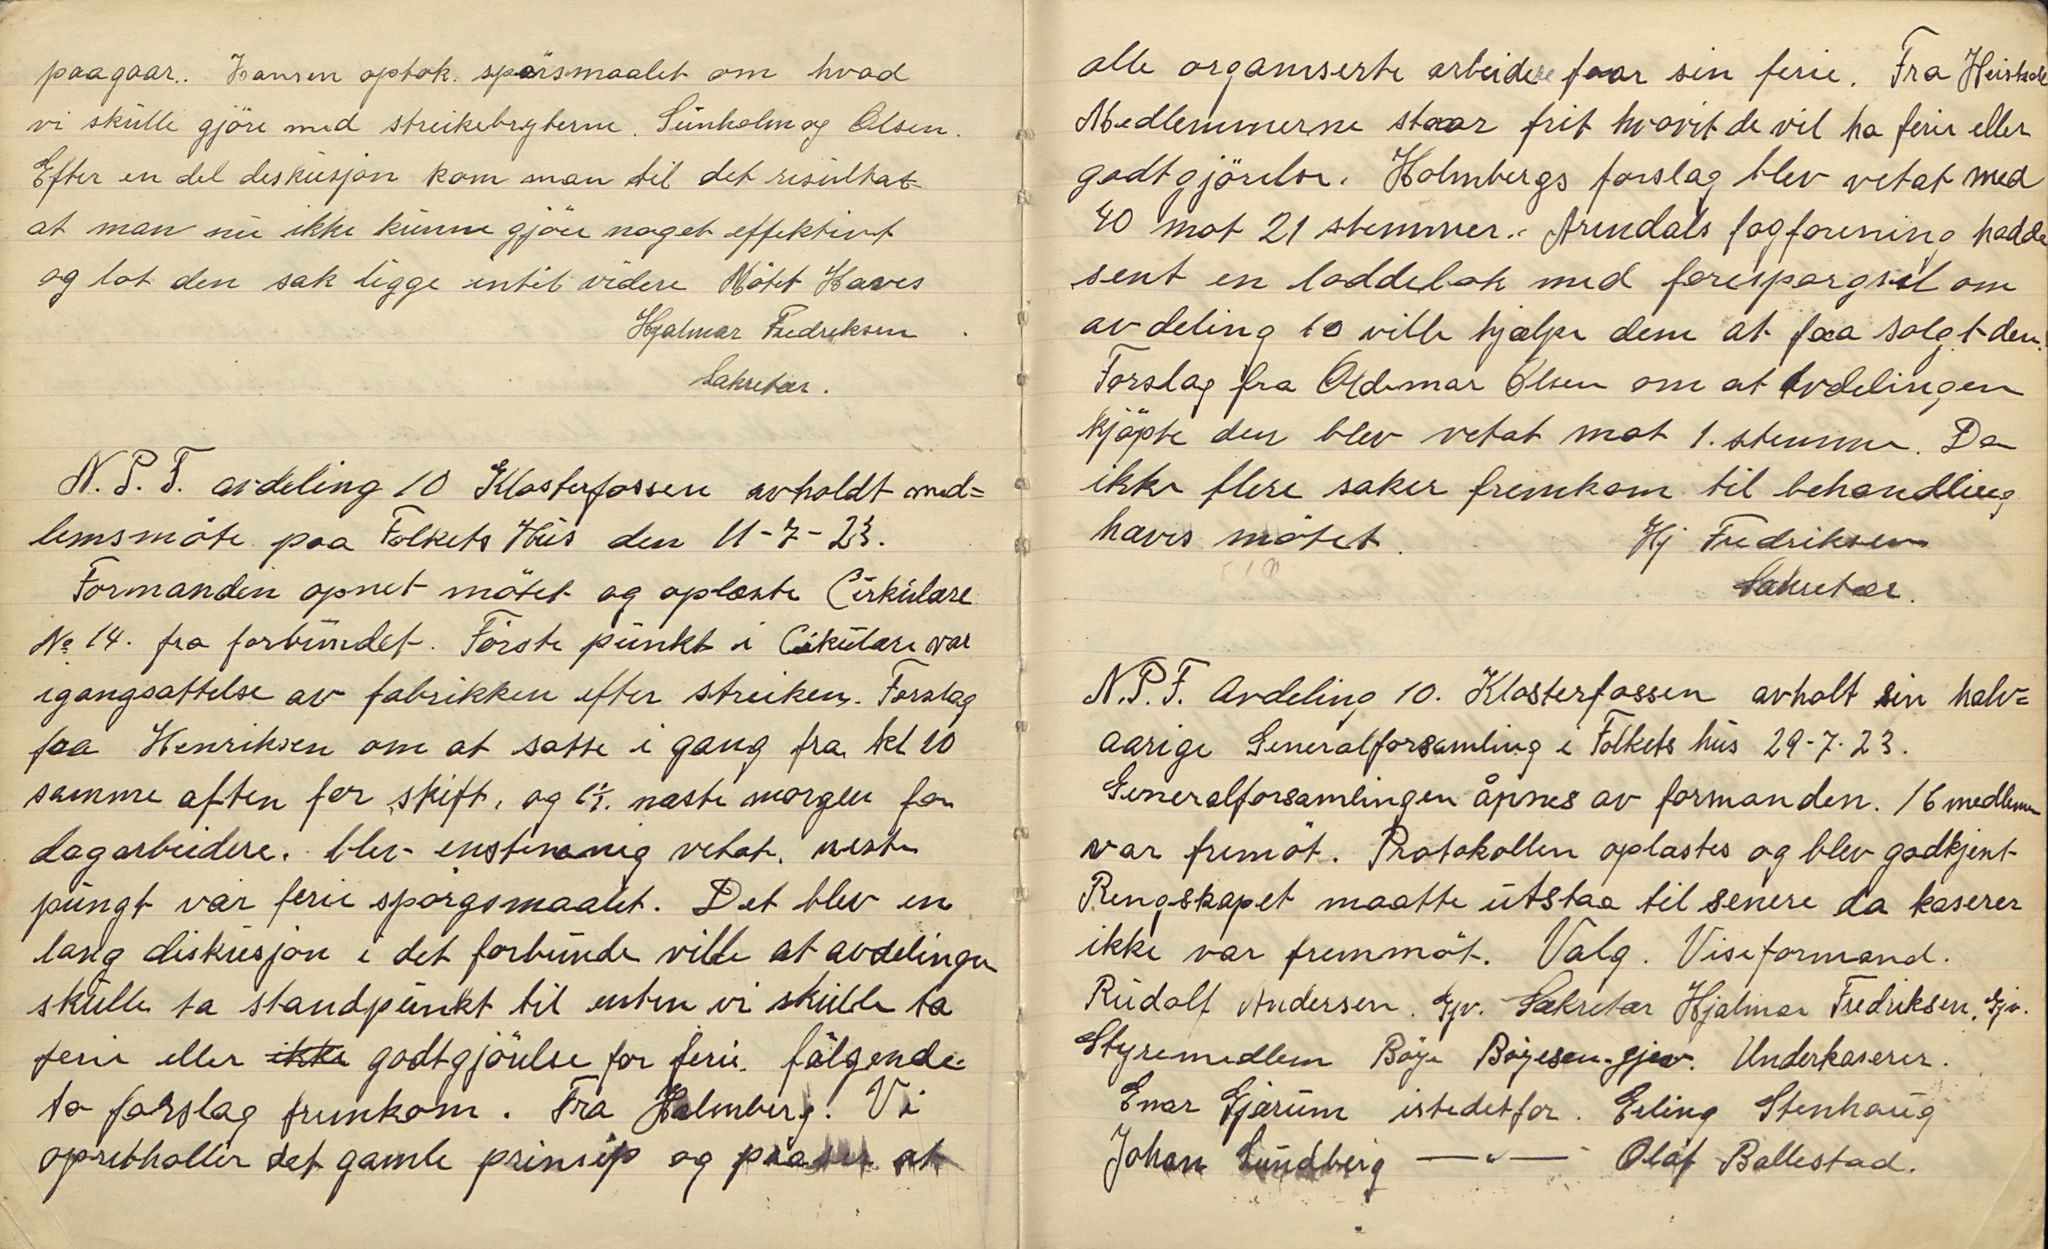 paagaar.. Hansen optok. spørsmaalet om hvad
vi skulle gjöre med streikebryterne. Sunholm og Olsen.
Efter en del deskusjon kom man til det resultat
at man nu ikke kunne gjöre noget effektivt
og lot den sak ligge intil videre Mötet Haves
Hjalmar Fredriksen
Sakretær.
N. P. F. avdeling 10 Klosterfossen avholdt med=
lemsmöte paa Folkets Hus den 11-7-23.
Formanden opnet mötet og oplæste Cirkulære
No 14. fra forbundet. Förste punkt i Cikulære var
igangsattelse av fabrikken efter streiken. Forslag
faa Henriksen om at satte i gang fra kl 10
samme aften for skift, og næste morgen for
dagarbeidere. blev enstemmig vetat. neste
pungt var ferie spörgsmaalet. Det blev en
lang diskusjon i det forbunde ville at avdelingen
skulle ta standpunkt til enten vi skulle ta
ferie eller ikke godtgjörelse for ferie. fölgende
to forslag fremkom. Fra Holmberg. Vi
opretholler det gamle prinsip og paaser at
alle organiserte arbeidere faar sin ferie. Fra Heisholt
Medlemmerne staar frit hvorvit de vil ha ferie eller
godtgjörelse. Holmbergs forslag blev vetat med
40 mot 21 stemmer.. Arendals fagforening hadde
sent en loddebok med forespørgsel om
avdeling 10 ville hjælpe dem at faa solgt den.
Forslag fra Oldemar Olsen om at Avdelingen
kjöpte den blev vetat mot 1. stemme. Da
ikke flere saker fremkom til behandling
haves mötet. Hj Fredriksen
Sakretær.
N.P.F. Avdeling 10. Klosterfossen avholt sin halv=
aarige Generalforsamling i Folkets hus 29-7-23.
Generalforsamlingen åpnes av formanden. 16 medlemmer
var fremöt. Protokollen oplæstes og blev godkjent
Rengskapet maatte utstaa til senere da kaserer
ikke var fremmöt. Valg. Viseformand.
Rudolf Andersen. Gjv. Sakretær Hjalmar Fredriksen, Gjv.
Styremedlem Böye Böyesen. gjev. Underkaserer.
Enar Gjærum istedetfor. Erling Stenhaug
Johan Sundberg —"— Olaf Ballestad.